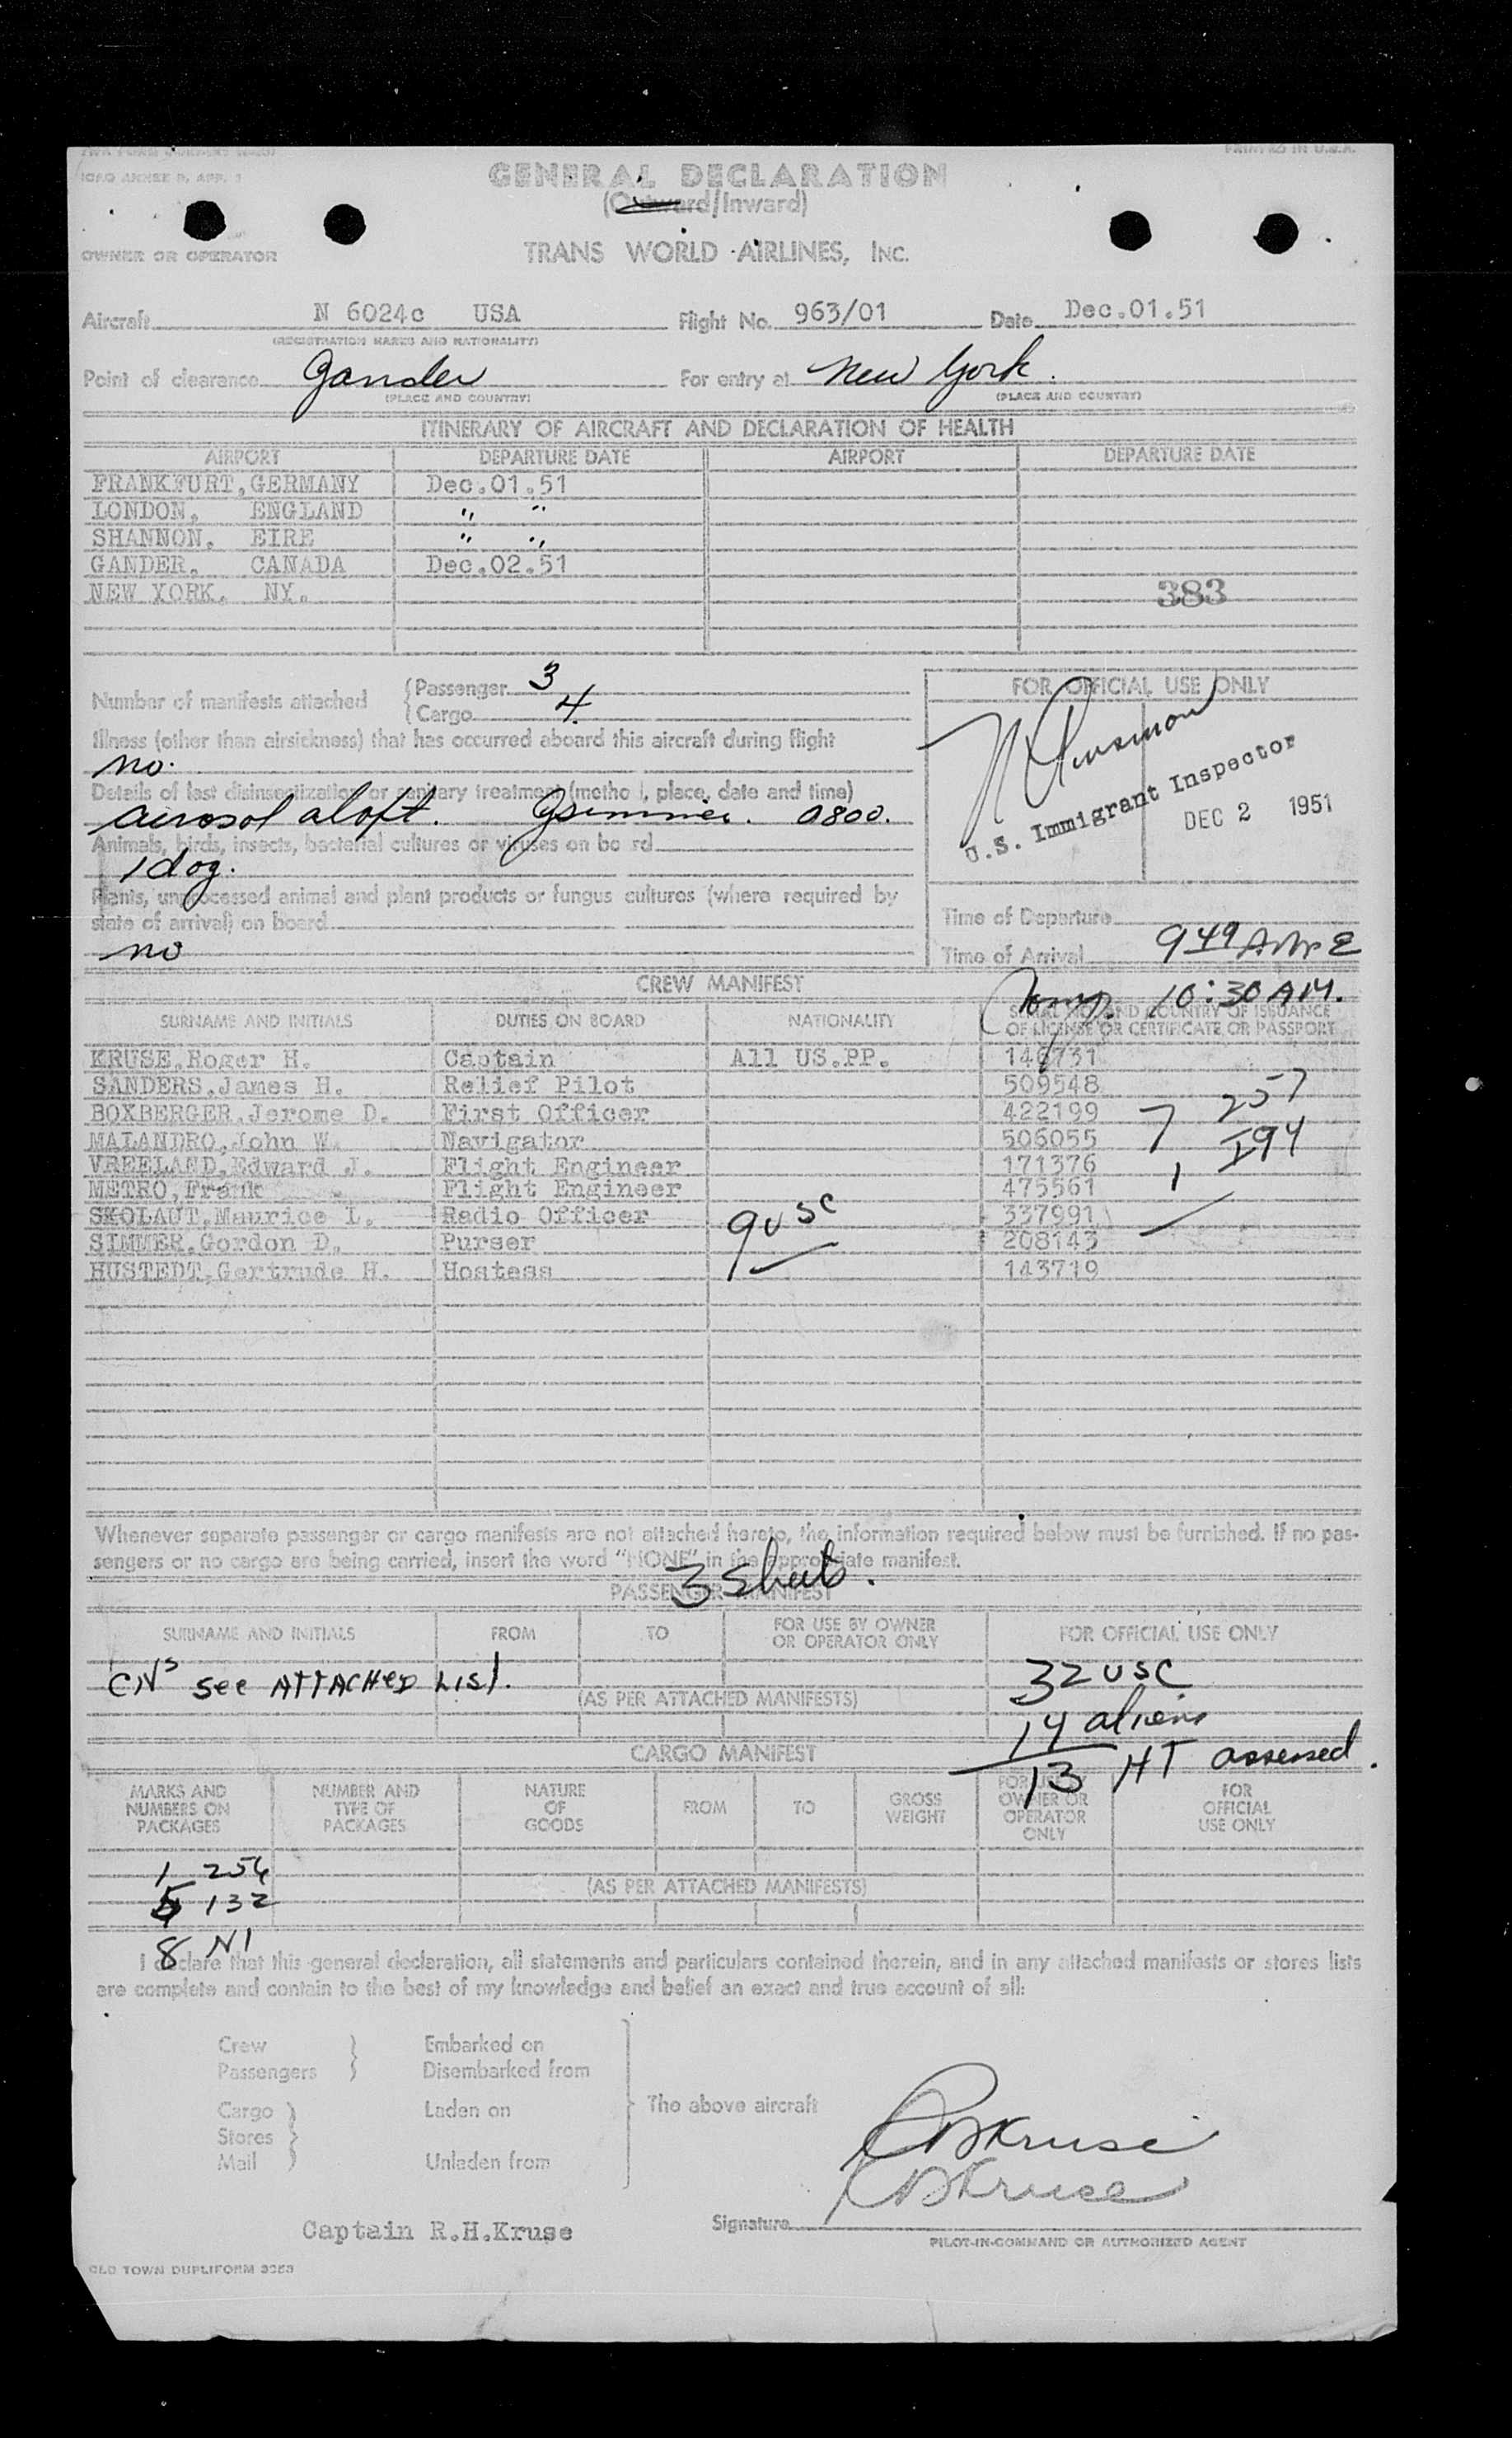 ICAO ANNEX 9, APP. 1
PRINTED IN U.S.A.
GENERAL DECLARATION
(Outward/Inward)
OWNER OR OPERATOR
TRANS WORLD AIRLINES, INC.
Aircraft N 6024c USA Flight No. 963/01 Date Dec.01.51
(REGISTRATION MARKS AND NATIONALITY)
Point of clearance Gander For entry at New York.
(PLACE AND COUNTRY) (PLACE AND COUNTRY)
ITINERARY OF AIRCRAFT AND DECLARATION OF HEALTH
AIRPORT DEPARTURE DATE AIRPORT DEPARTURE DATE
FRANKFURT,GERMANY Dec.01.51
LONDON, ENGLAND " "
SHANNON, EIRE " "
GANDER, CANADA Dec.02.51
NEW YORK, NY. 383
Number of manifests attached
Passenger 3
Cargo 4
Illness (other than airsickness) that has occurred aboard this aircraft during flight
no.
Details of last disinsectization or sanitary treatment (method, place, date and time)
aerosol aloft. GSimmer. 0800.
Animals, birds, insects, bacterial cultures or viruses on board
1 dog.
Plants, unprocessed animal and plant products or fungus cultures (where required by
state of arrival) on board
no
FOR OFFICIAL USE ONLY
U.S. Immigrant Inspector
DEC 2 1951
Time of Departure
Time of Arrival 9 49 AM E
10:30 AM.
CREW MANIFEST
SURNAME AND INITIALS DUTIES ON BOARD NATIONALITY SERIAL NO. AND COUNTRY OF ISSUANCE
OF LICENSE OR CERTIFICATE OR PASSPORT
KRUSE,Roger H. Captain All US.PP. 146731
SANDERS,James H. Relief Pilot 509548
BOXBERGER,Jerome D. First Officer 422199 7 257
MALANDRO,John W. Navigator 506055 1 I94
VREELAND,Edward J. Flight Engineer 171376
METRO,Frank Flight Engineer 475561
SKOLAUT,Maurice L. Radio Officer 9 USC 337991
SIMMER,Gordon D. Purser 208143
HUSTEDT,Gertrude H. Hostess 143719
Whenever separate passenger or cargo manifests are not attached hereto, the information required below must be furnished. If no pas-
sengers or no cargo are being carried, insert the word "NONE" in the appropriate manifest.
3 sheets.
PASSENGER MANIFEST
SURNAME AND INITIALS FROM TO FOR USE BY OWNER OR OPERATOR ONLY FOR OFFICIAL USE ONLY
CNs see ATTACHED LIST.
(AS PER ATTACHED MANIFESTS)
32 USC
14 aliens
13 HT assessed.
CARGO MANIFEST
MARKS AND NUMBERS ON PACKAGES NUMBER AND TYPE OF PACKAGES NATURE OF GOODS FROM TO GROSS WEIGHT FOR USE BY OWNER OR OPERATOR ONLY FOR OFFICIAL USE ONLY
1 256
5 132
8 NI
(AS PER ATTACHED MANIFESTS)
I declare that this general declaration, all statements and particulars contained therein, and in any attached manifests or stores lists
are complete and contain to the best of my knowledge and belief an exact and true account of all:
Crew Embarked on
Passengers Disembarked from
Cargo Laden on The above aircraft
Stores
Mail Unladen from
RHKruse
RHKruse
Signature
Captain R.H.Kruse
PILOT-IN-COMMAND OR AUTHORIZED AGENT
OLD TOWN DUPLIFORM 3283